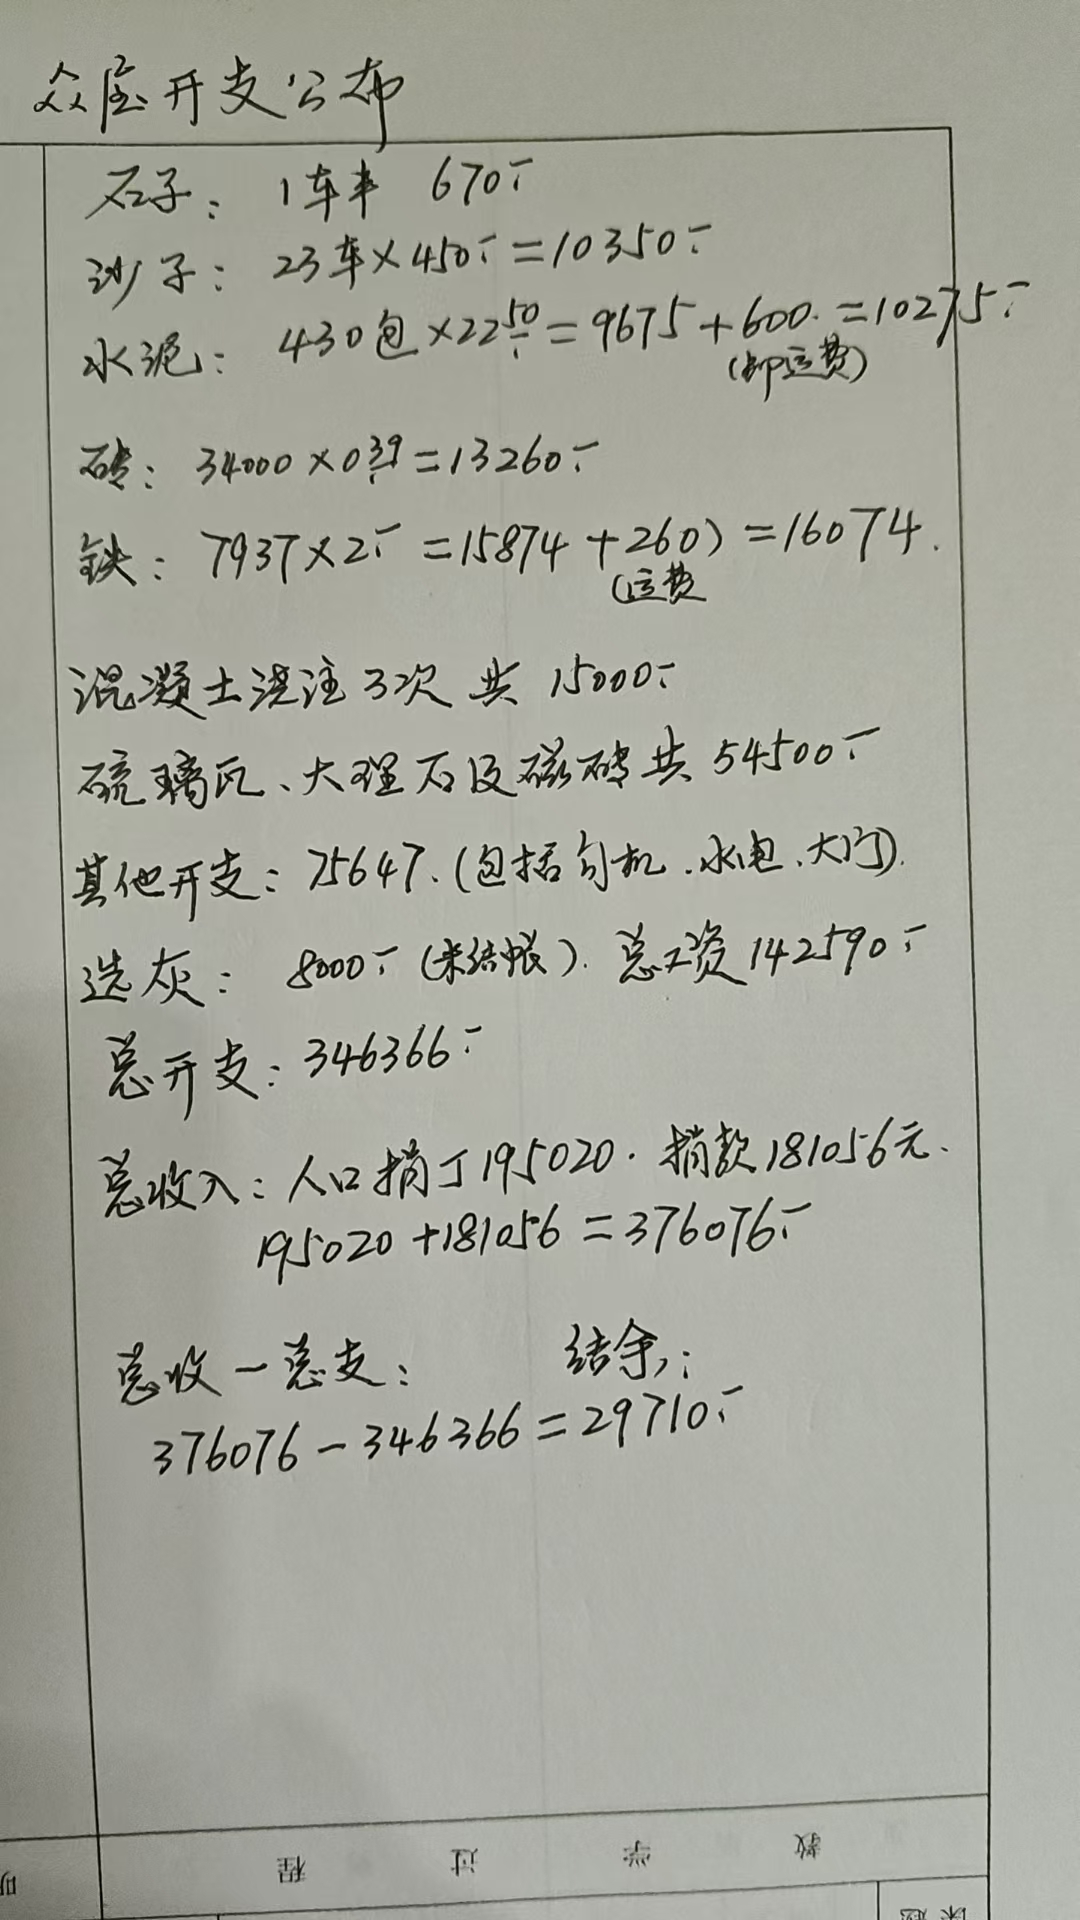 众屋开支公布
石子: 1车半 670.-
沙子: 23车×450.-=10350.-
水泥: 430包×22.50=9675+600.=10275.-
(卸运费)
砖: 34000×0.39=13260.-
铁: 7937×2.-=15874+260)=16074.
(运费
混凝土浇注3次 共 15000.-
硫璃瓦、大理石及磁砖共54500.-
其他开支: 75647.(包括勾机.水电.大门).
选灰: 8000.-(未结帐). 总工资142590.-
总开支: 346366.-
总收入: 人口捐丁195020. 捐款181056元.
195020+181056=376076.-
总收-总支: 结余:
376076-346366=29710.-
教学过程
课题
明